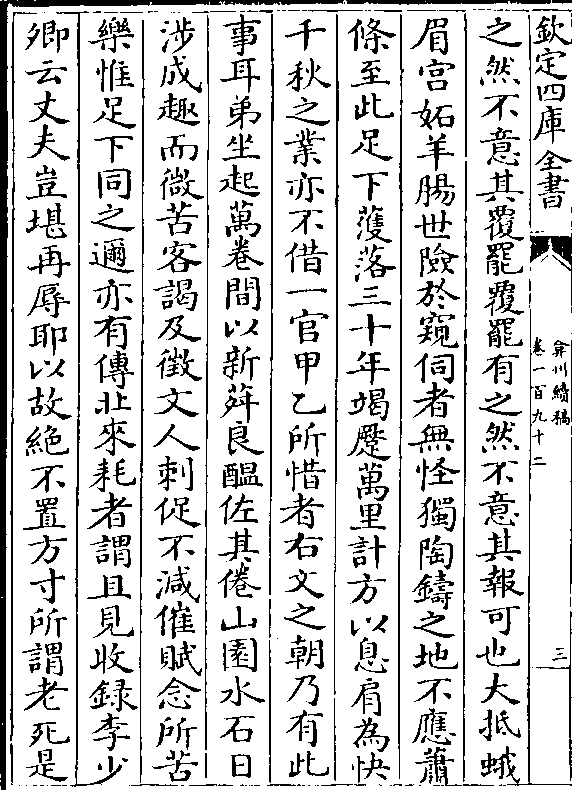 欽定四庫全書
弇州續稿
卷一百九十二
三
之然不意其覆罷覆罷有之然不意其報可也大抵蛾
眉宫妬羊腸世險於窺伺者無怪獨陶鑄之地不應蕭
條至此足下蒦落三十年竭蹷萬里計方以息肩為快
千秋之業亦不借一官甲乙所惜者右文之朝乃有此
事耳弟坐起萬卷間以新荈良醖佐其倦山園水石日
涉成趣而微苦客謁及徵文人刺促不減催賦念所苦
樂惟足下同之邇亦有傳北來耗者謂且見收録李少
卿云丈夫豈堪再辱耶以故絶不置方寸所謂老死是